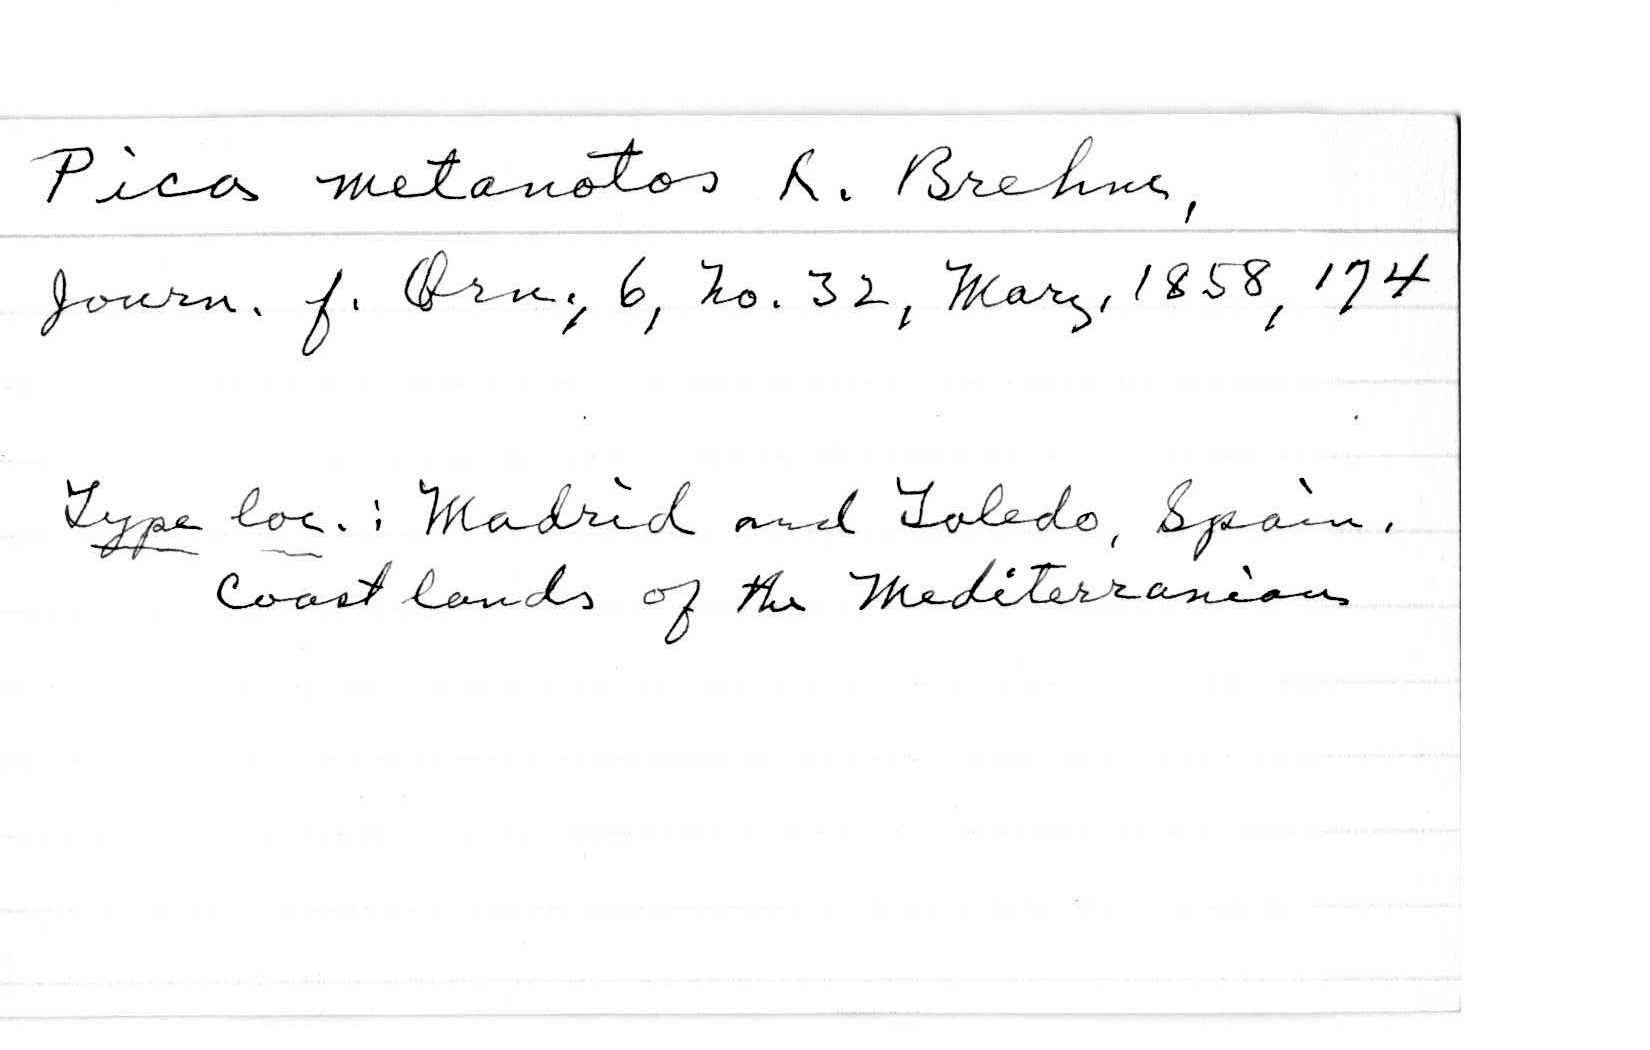 Pica metanotos R. Brehm,
Journ. f. Orn., 6, No. 32, Marz, 1858, 174
Type loc.: Madrid and Toledo, Spain.
Coast lands of the Mediterranian